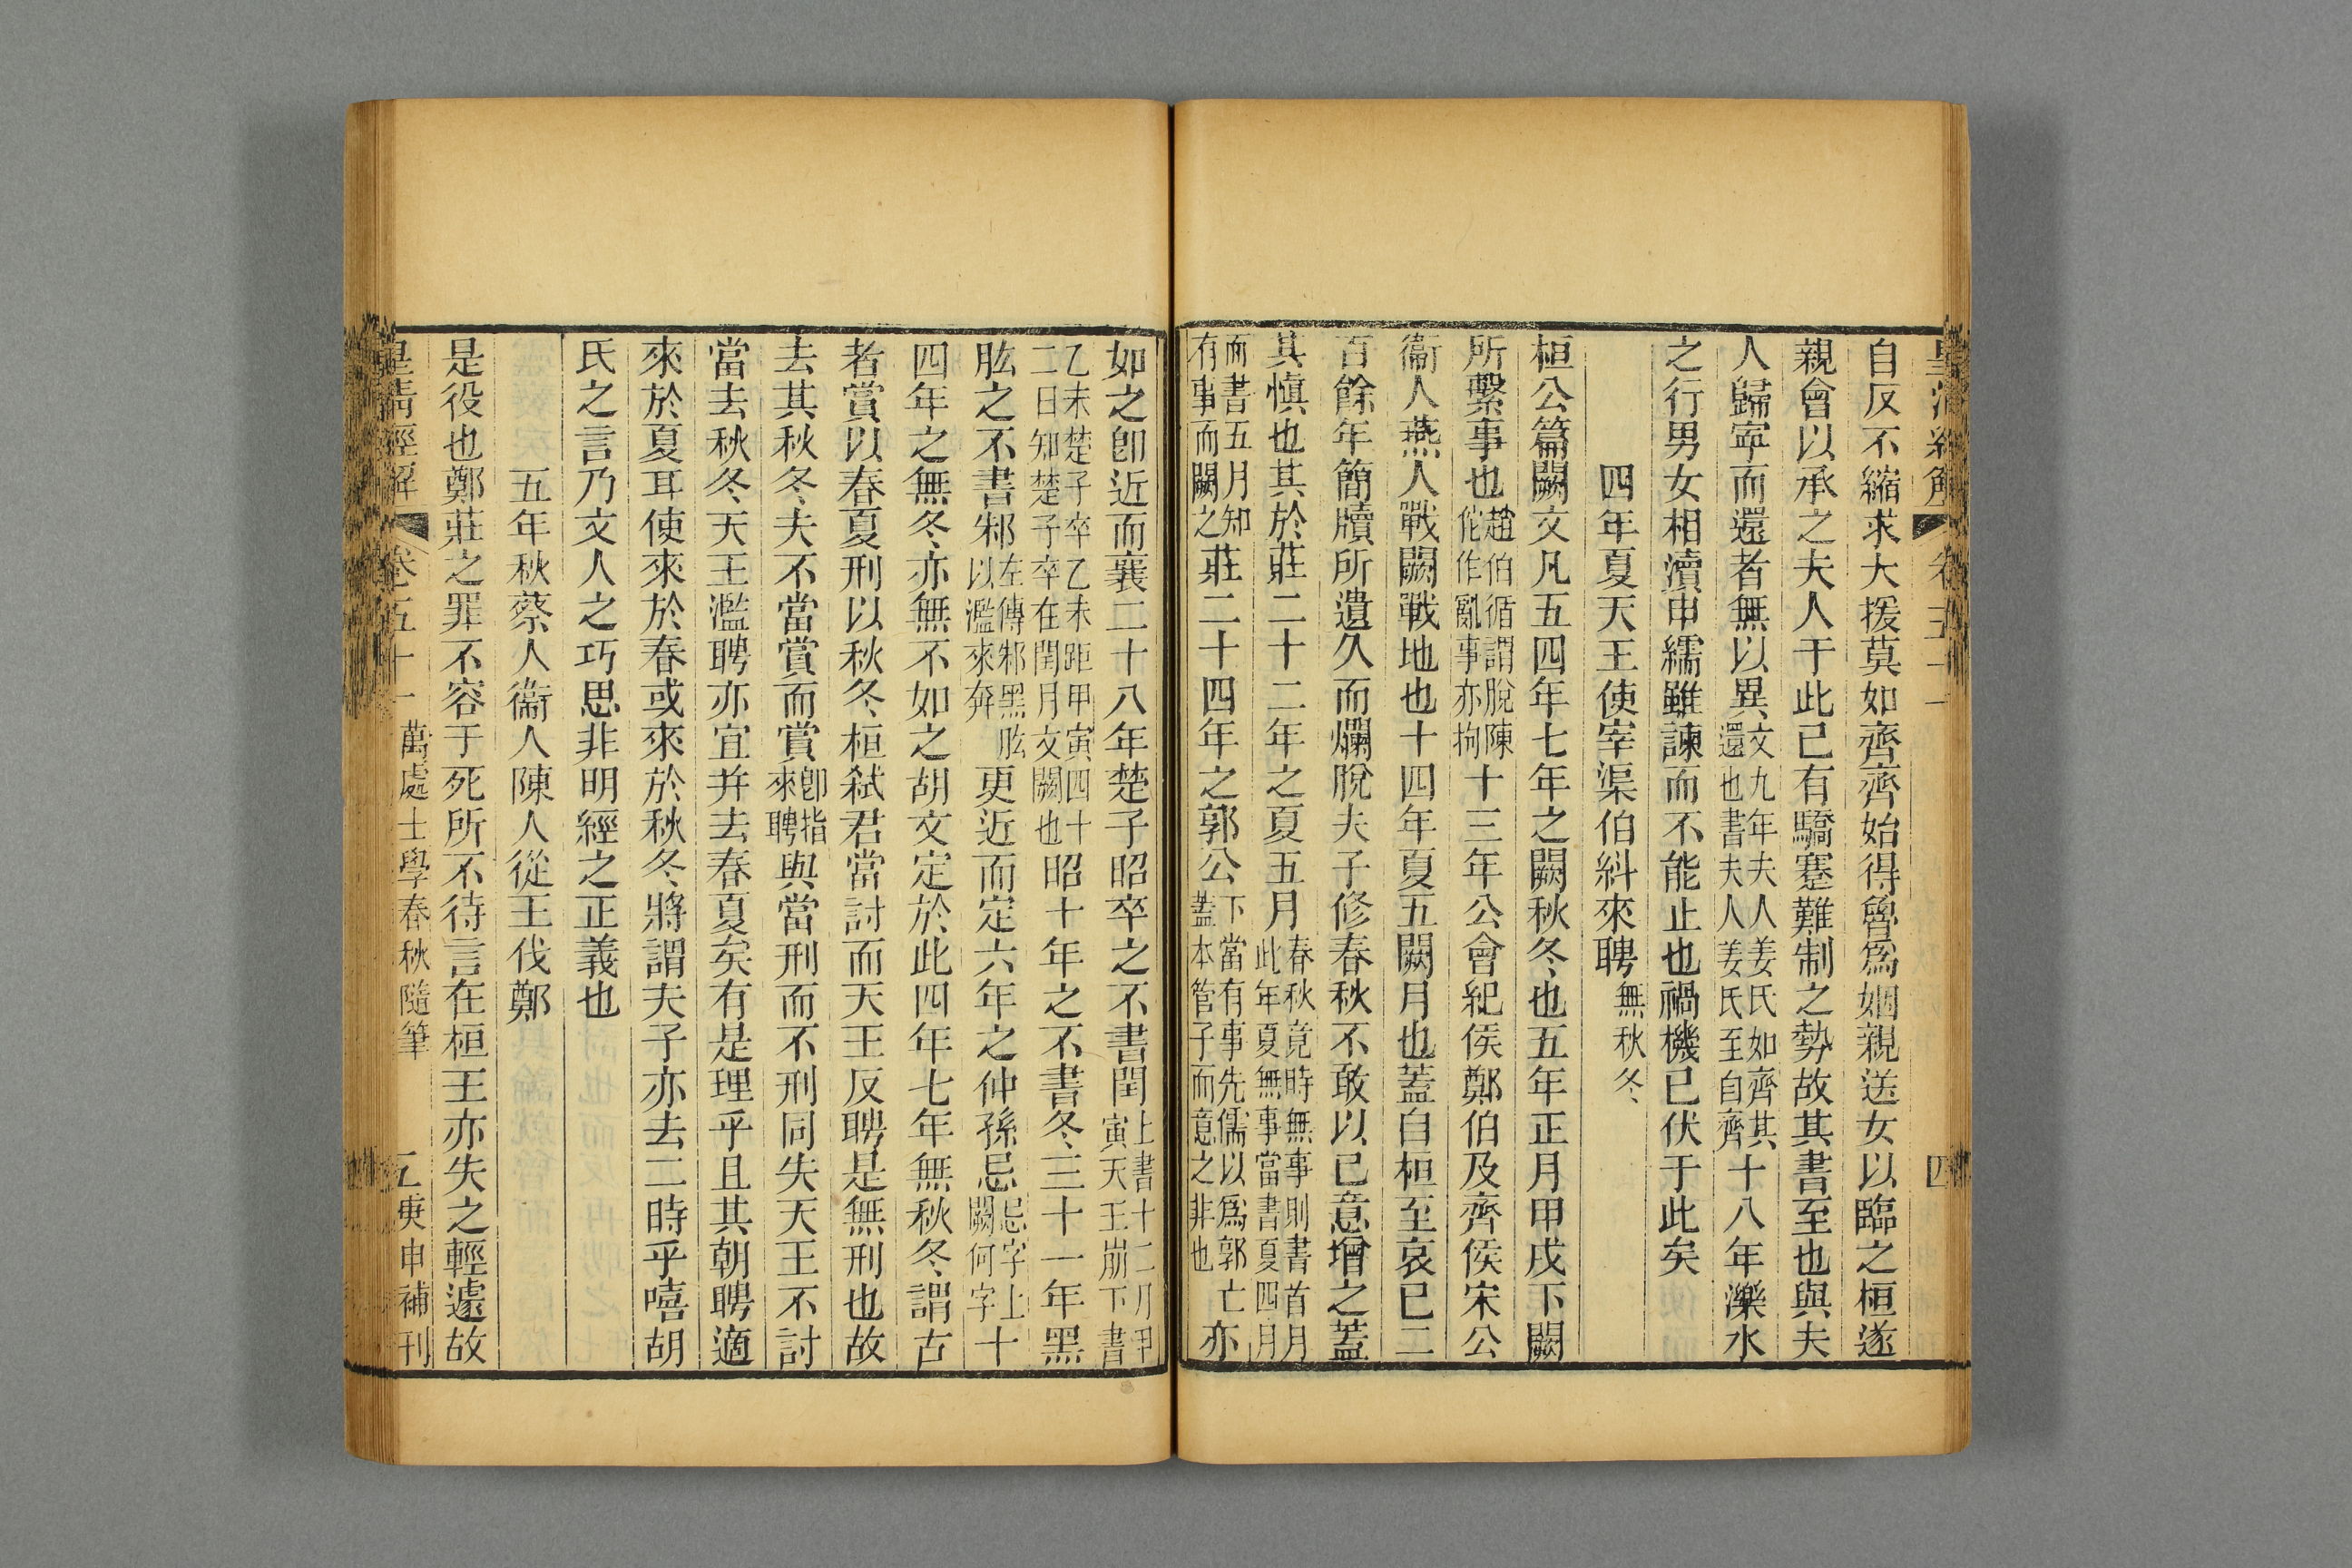 皇清經解 卷五十一 四
自反不縮求大援莫如齊齊始得魯爲姻親送女以臨之桓遂
親會以承之夫人于此已有驕蹇難制之勢故其書至也與夫
人歸寧而還者無以異文九年夫人姜氏如齊其還也書夫人姜氏至自齊十八年濼水
之行男女相瀆申繻雖諫而不能止也禍機已伏于此矣
四年夏天王使宰渠伯糾來聘無秋冬
桓公篇闕文凡五四年七年之闕秋冬也五年正月甲戌下闕
所繫事也趙伯循謂脫陳佗作亂事亦拘十三年公會紀侯鄭伯及齊侯宋公
衞人燕人戰闕戰地也十四年夏五闕月也蓋自桓至哀已二
百餘年簡牘所遺久而爛脫夫子修春秋不敢以已意增之蓋
其慎也其於莊二十二年之夏五月春秋竟時無事則書首月此年夏無事當書夏四月
而書五月知有事而闕之莊二十四年之郭公下當有事先儒以爲郭亡蓋本管子而意之非也亦
如之卽近而襄二十八年楚子昭卒之不書閏上書十二月甲寅天王崩下書
乙未楚子卒乙未距甲寅四十二日知楚子卒在閏月文闕也昭十年之不書冬三十一年黑
肱之不書邾左傳邾黑肱以濫來奔更近而定六年之仲孫忌忌字上闕何字十
四年之無冬亦無不如之胡文定於此四年七年無秋冬謂古
者賞以春夏刑以秋冬桓弑君當討而天王反聘是無刑也故
去其秋冬夫不當賞而賞卽指來聘與當刑而不刑同失天王不討
當去秋冬天王濫聘亦宜并去春夏矣有是理乎且其朝聘適
來於夏耳使來於春或來於秋冬將謂夫子亦去二時乎嘻胡
氏之言乃文人之巧思非明經之正義也
五年秋蔡人衞人陳人從王伐鄭
是役也鄭莊之罪不容于死所不待言在桓王亦失之輕遽故
皇清經解 卷五十一 萬處士學春秋隨筆 五 庚申補刊